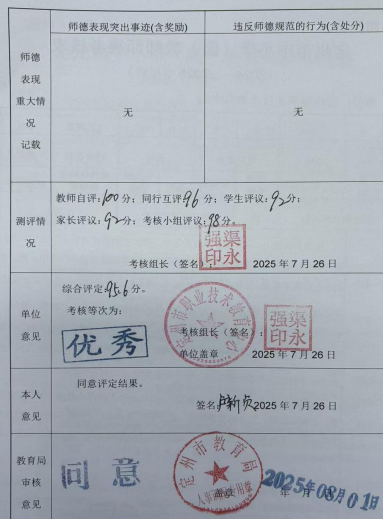 师德表现突出事迹(含奖励) 违反师德规范的行为(含处分)
师德
表现
重大情
况
记载
无 无
测评情
况
教师自评:100分; 同行互评96分; 学生评议:92分;
家长评议:92分; 考核小组评议:98分。
考核组长(签名): 2025年7月26日
强渠
印永
单位
意见
综合评定:95.6分。
考核等次为:
优秀
考核组长(签名):
强渠
印永
单位盖章 2025年7月26日
定州市职业技术教育中心
本人
意见
同意评定结果。
签名: 2025年7月26日
教育局
审核
意见
同意
定州市教育局
盖章 年 月 日
2025年08月01日